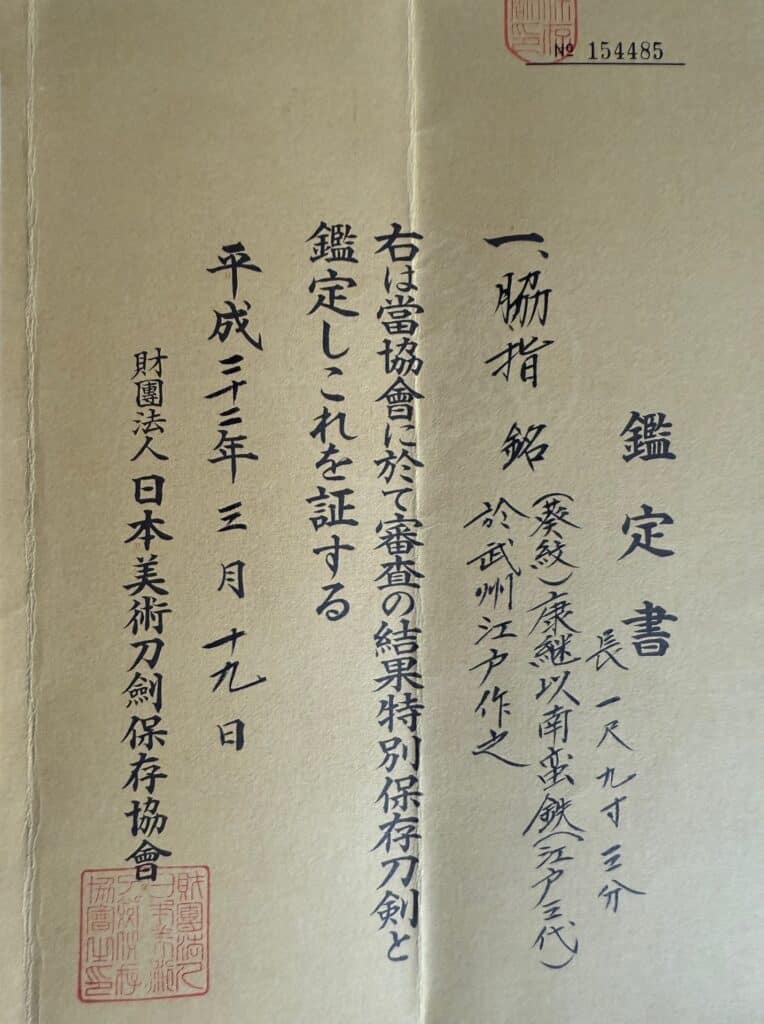 № 154485
鑑定書
一、脇指 銘 (葵紋)康継以南蛮鉄(江戸三代)
於武州江戸作之
長一尺九寸三分
右は當協會に於て審査の結果特別保存刀剣と
鑑定しこれを証する
平成二十二年三月十九日
財團法人日本美術刀劍保存協會